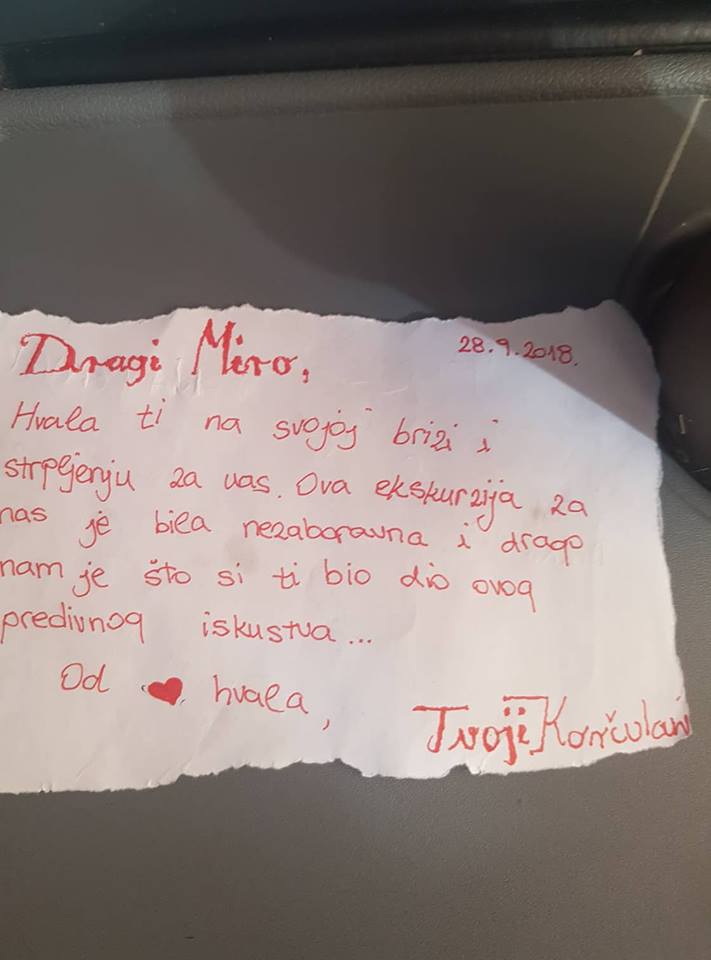 Dragi Miro, 28.9.2018.
Hvala ti na svojoj brizi i
strpljenju za nas. Ova ekskurzija za
nas je bila nezaboravna i drago
nam je što si ti bio dio ovog
predivnog iskustva...
Od ♥ hvala,
Tvoji Korčulani